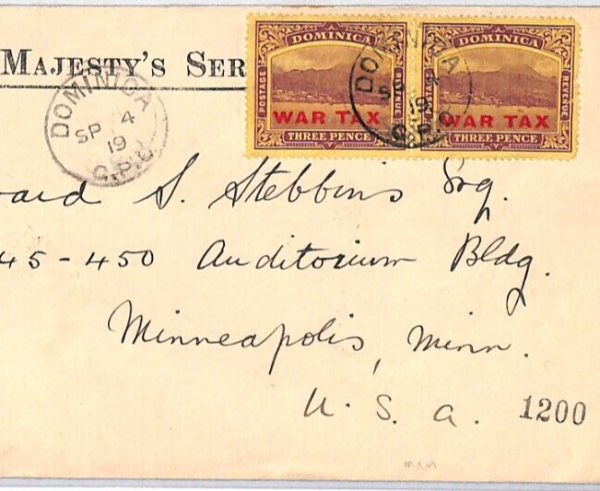 MAJESTY'S SER
DOMINICA
SP 4
19
G.P.O.
DOMINICA
POSTAGE
REVENUE
WAR TAX
THREE PENCE
DOMINICA
POSTAGE
REVENUE
WAR TAX
THREE PENCE
DOMINICA
SP 4
19
G.P.O.
ward S. Stebbins Esq.
45-450 Auditorium Bldg.
Minneapolis, Minn.
U. S. a. 1200